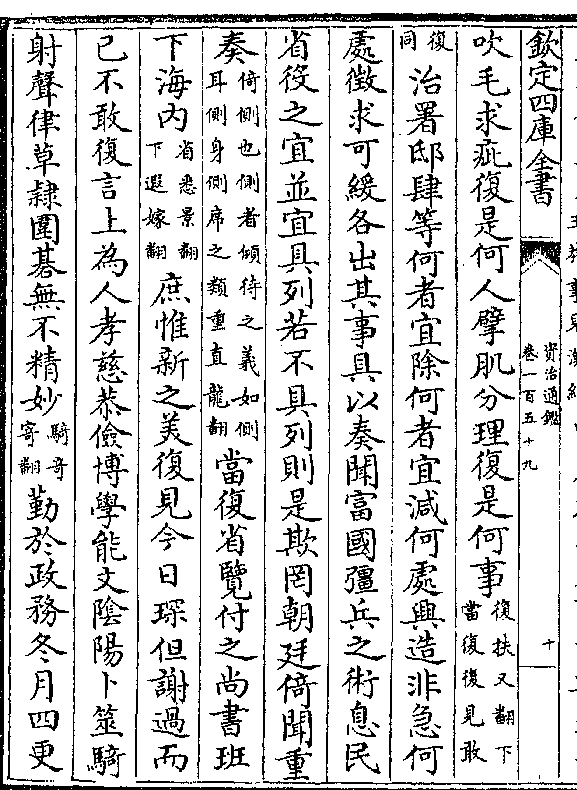 欽定四庫全書
資治通鑑
卷一百五十九
十
吹毛求疵復是何人擘肌分理復是何事復扶又翻下當復復見敢
復同治署邸肆等何者宜除何者宜減何處興造非急何
處徵求可緩各出其事具以奏聞富國彊兵之術息民
省役之宜並宜具列若不具列則是欺罔朝廷倚聞重
奏倚側也側者傾待之義如側耳側身側席之類重直龍翻當復省覽付之尚書班
下海内省悉景翻下遐嫁翻庶惟新之美復見今日琛但謝過而
已不敢復言上為人孝慈恭儉博學能文陰陽卜筮騎
射聲律草隷圍碁無不精妙騎奇寄翻勤於政務冬月四更